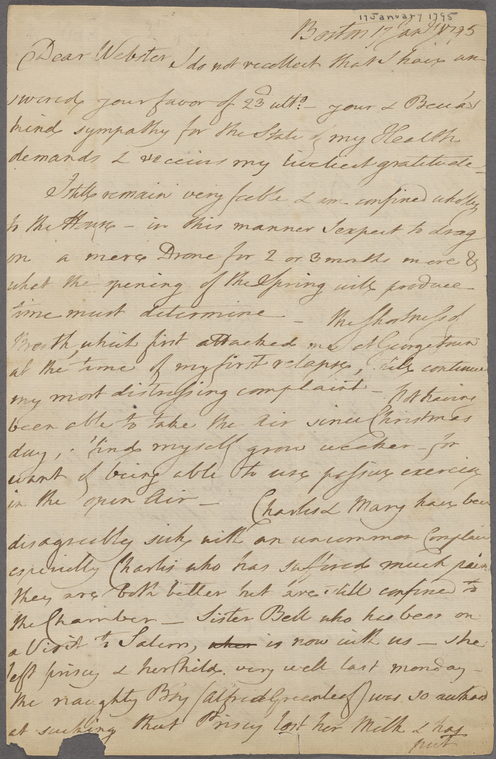 17 January 1795
Boston 17 Jany 1795
Dear Webster
I do not recollect that I have an
swered your favor of 23d ulto. – your & Becca's
kind sympathy for the State of my Health
demands & receives my liveliest gratitude –
I still remain very feeble & am confined wholly
to the House – in this manner I expect to drag
on a mere Drone for 2 or 3 months more &
what the opening of the Spring will produce
time must determine – the shortness of
Breath, which first attacked me at Georgetown
at the time of my first relapse, still continues
my most distressing complaint – Not having
been able to take the Air since Christmas
day, I find myself grow weaker for
want of being able to use passive exercise
in the open Air – Charles & Mary have been
disagreeably sick with an uncommon Complaint
especially Charles who has suffered much pain
they are both better but are still confined to
the Chamber – Sister Bell who has been on
a Visit to Salem, is now with us – She
left Prissy & her Child very well last monday –
the naughty Boy (Alfred Greenleaf) was so awkward
at sucking that Prissy lost her Milk & has
put